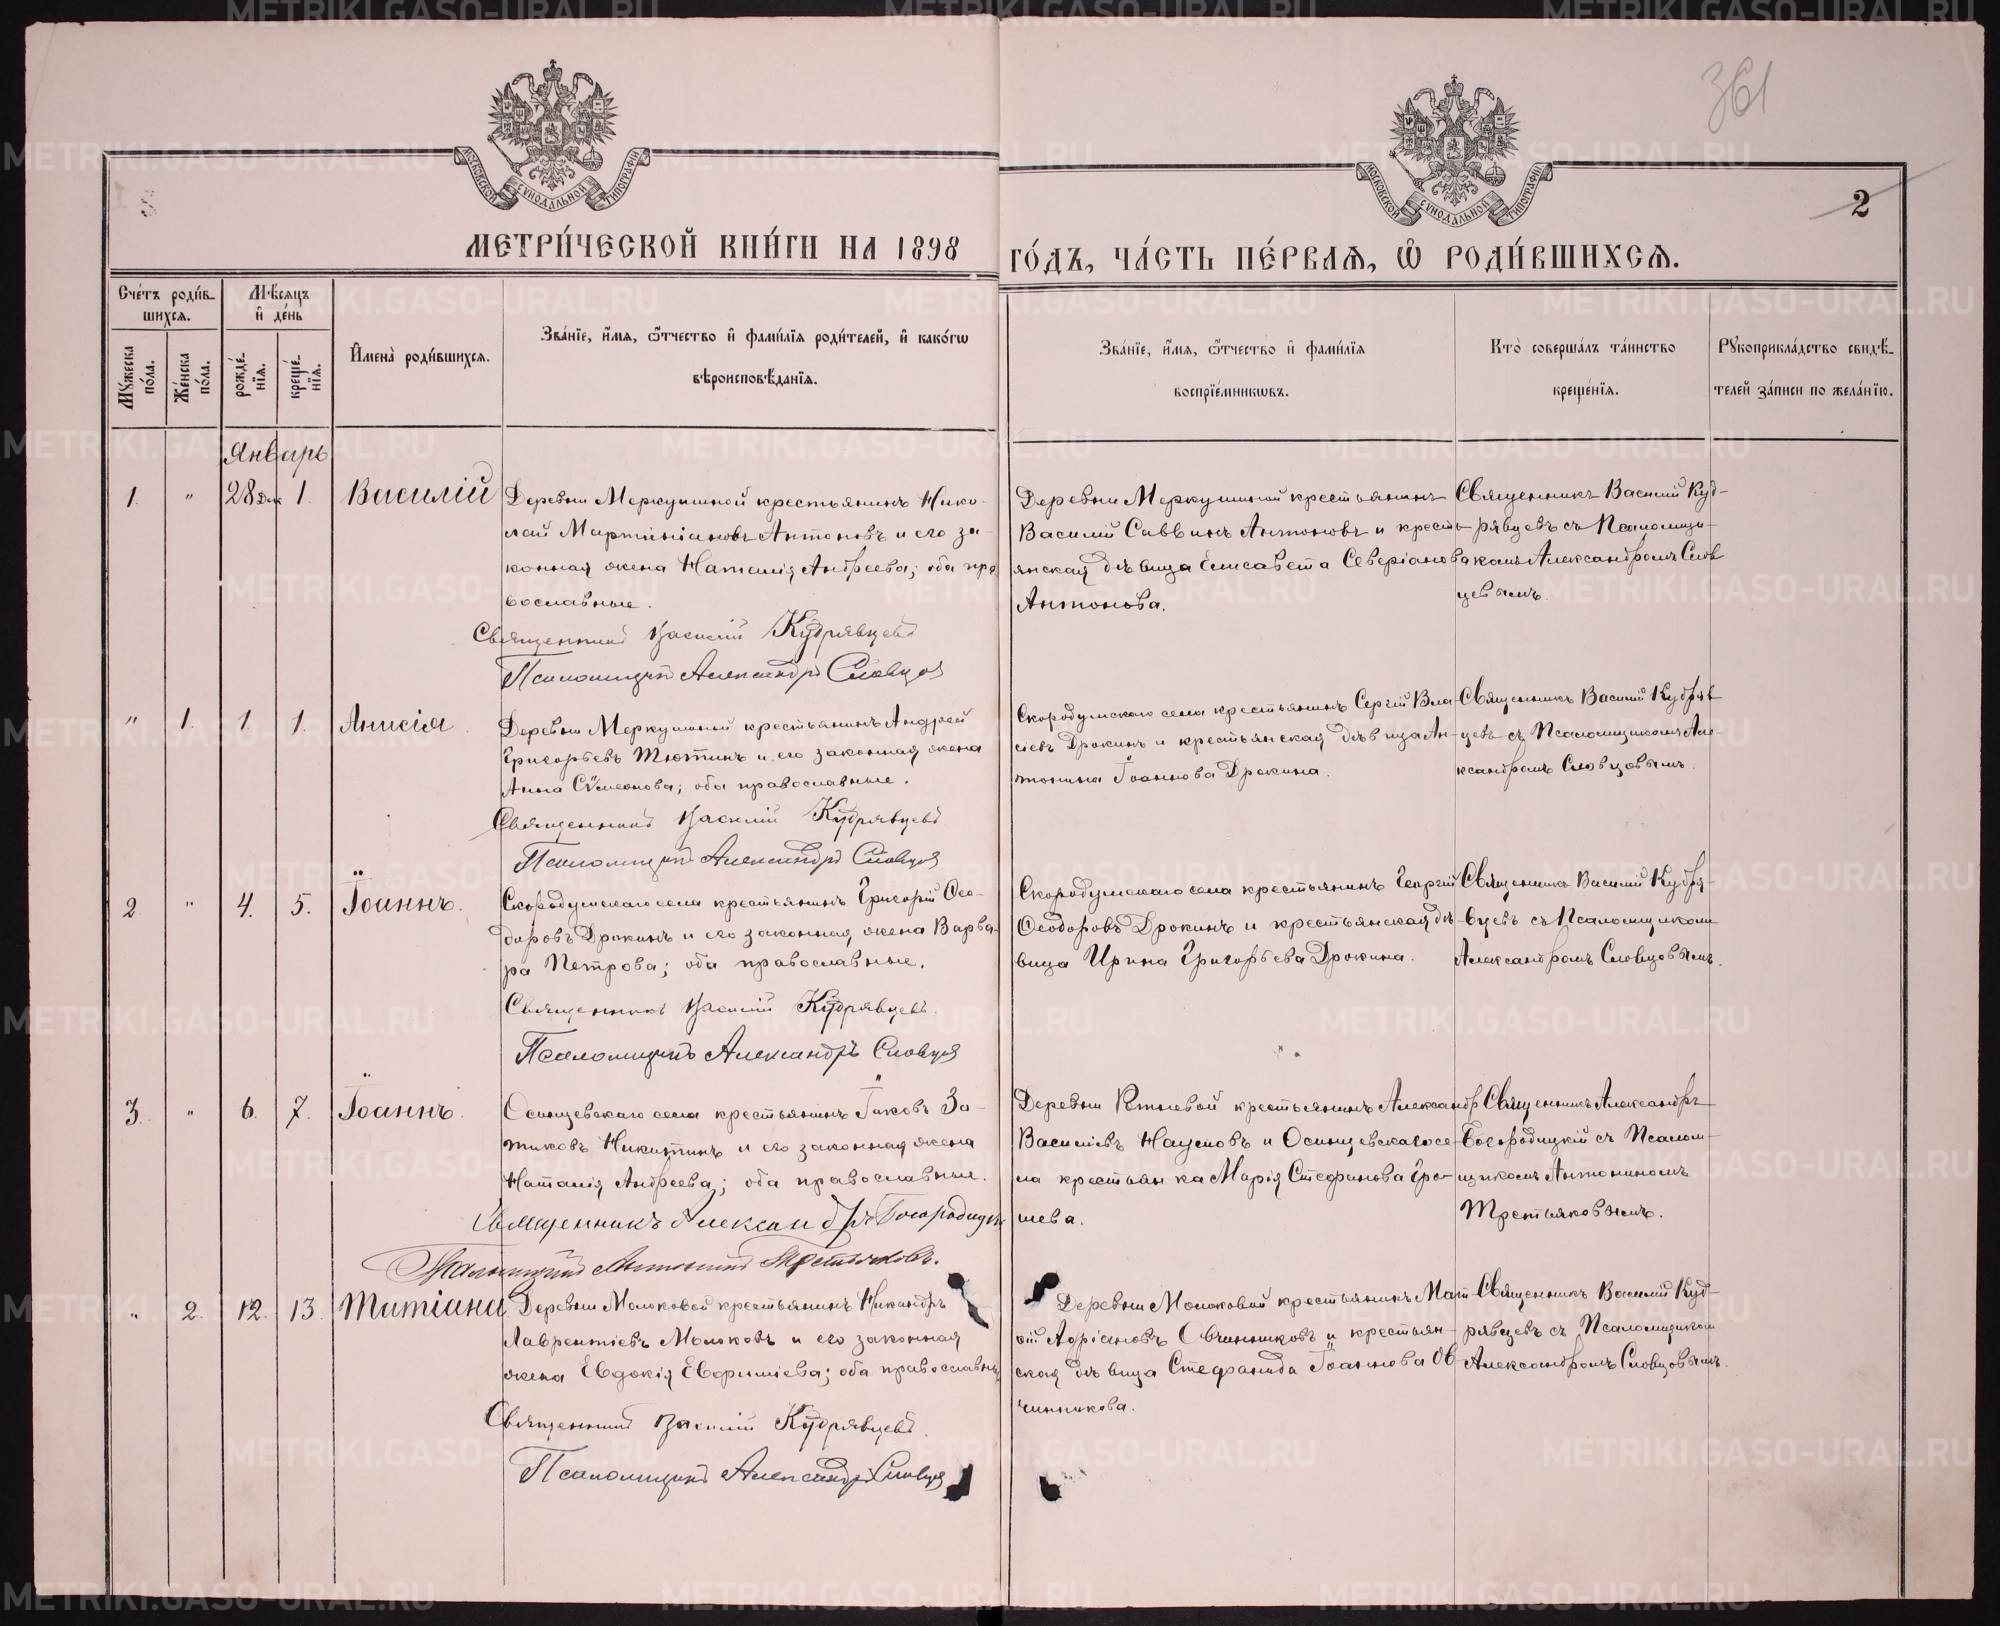 361
2
МОСКОВСКОЙ СѴНОДАЛЬНОЙ ТИПОГРАФІИ
МОСКОВСКОЙ СѴНОДАЛЬНОЙ ТИПОГРАФІИ
МЕТРИ́ЧЕСКОЙ КНИ́ГИ НА 1898
ГО́ДЪ, ЧА́СТЬ ПЕ́РВАѦ, Ѽ РОДИ́ВШИХСѦ.
Сче́тъ роди́в-
шихсѧ.
Мѣ́сѧцъ
и҆ де́нь
Мꙋжеска
по́ла.
Же́нска
по́ла.
рожде́-
нїѧ.
креще́-
нїѧ.
И҆мена̀ роди́вшихсѧ.
Зва́нїе, и҆́мѧ, ѻ҆́тчество и҆ фами́лїѧ роди́телей, и҆ како́гѡ
вѣроисповѣ́данїѧ.
Зва́нїе, и҆́мѧ, ѻ҆́тчество и҆ фами́лїѧ
воспрїе́мникѡвъ.
Кто̀ соверша́лъ та́инство
креще́нїѧ.
Рꙋкоприкла́дство свидѣ́-
телей за́писи по жела́нїю.
Январь
1. " 28 Дек 1. Василій
Деревни Меркушиной крестьянинъ Нико-
лай Мартиніановъ Антоновъ и его за-
конная жена Наталія Андреева; оба пра
вославные.
Священникъ Василій Кудрявцевъ
Псаломщикъ Александръ Словцов
Деревни Меркушиной крестьянинъ
Василій Саввинъ Антоновъ и кресть-
янская дѣвица Елисавета Северіанова
Антонова.
Священникъ Василій Куд-
рявцевъ съ Псаломщи-
комъ Александромъ Слов
цевымъ.
" 1. 1 1. Анисія
Деревни Меркушиной крестьянинъ Андрей
Григорьевъ Тютинъ и его законная жена
Анна Сѵмеонова; оба православные.
Священникъ Василій Кудрявцевъ
Псаломщикъ Александръ Словцов
Скородумскаго села крестьянинъ Сергій Вла
сіевъ Дрокинъ и крестьянская дѣвица Ан-
тонина Іоаннова Дрокина.
Священникъ Василій Кудряв
цевъ съ Псаломщикомъ Але-
ксандромъ Словцовымъ.
2. " 4. 5. Іоаннъ.
Скородумскаго села крестьянинъ Григорій Ѳео-
доровъ Дрокинъ и его законная жена Варва-
ра Петрова; оба православные.
Священникъ Василій Кудрявцевъ.
Псаломщикъ Александръ Словцов
Скородумскаго села крестьянинъ Георгій
Ѳеодоровъ Дрокинъ и крестьянская дѣ-
вица Ирина Григорьева Дрокина.
Священникъ Василій Кудря-
вцевъ съ Псаломщикомъ
Александромъ Словцовымъ.
3. " 6. 7. Іоаннъ.
Осинцевскаго села крестьянинъ Іаковъ Зо-
тиковъ Никитинъ и его законная жена
Наталія Андреева; оба православные.
Священникъ Александръ Богородицкій
Псаломщикъ Антонинъ Третьяковъ.
Деревни крестьянинъ Александр
Василіевъ Наумовъ и Осинцевскаго се-
ла крестьянка Марія Стефанова Гро-
шева.
Священникъ Александръ
Богородицкій съ Псалом-
щикомъ Антониномъ
Третьяковымъ.
" 2. 12. 13. Татіана
Деревни Молоковой крестьянинъ Никандръ
Лаврентіевъ Молоковъ и его законная
жена Евдокія Евфиміева; оба православны
Священникъ Василій Кудрявцевъ.
Псаломщикъ Александръ Словцов
Деревни Молоковой крестьянинъ Мат-
ѳій Адріановъ Овчинниковъ и крестьян-
ская дѣвица Стефанида Іоаннова Ов-
чинникова.
Священникъ Василій Куд-
рявцевъ съ Псаломщикомъ
Александромъ Словцовымъ.
METRIKI.GASO-URAL.RU